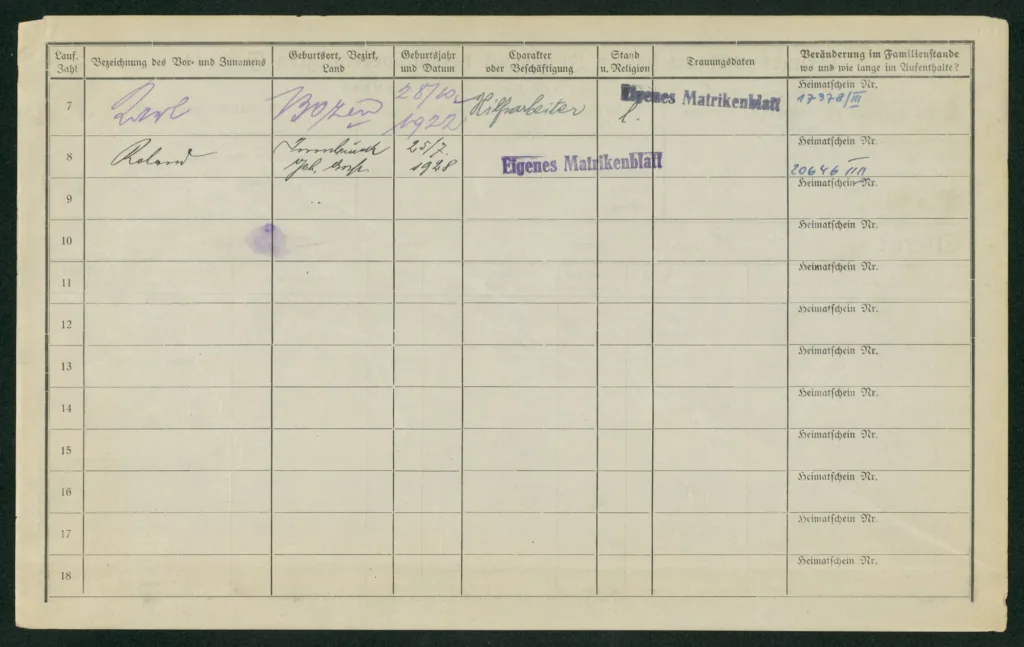 Lauf. Zahl
Bezeichnung des Vor- und Zunamens
Geburtsort, Bezirk, Land
Geburtsjahr und Datum
Charakter oder Beschäftigung
Stand u. Religion
Trauungsdaten
Veränderung im Familienstande
wo und wie lange im Aufenthalte?
7
Karl
Bozen
28/10.
1922
Hilfsarbeiter
l.
Eigenes Matrikenblatt
Heimatschein Nr.
17378/III
8
Roland
Innsbruck
25/7.
1928
Eigenes Matrikenblatt
Heimatschein Nr.
20646 III
9
Heimatschein Nr.
10
Heimatschein Nr.
11
Heimatschein Nr.
12
Heimatschein Nr.
13
Heimatschein Nr.
14
Heimatschein Nr.
15
Heimatschein Nr.
16
Heimatschein Nr.
17
Heimatschein Nr.
18
Heimatschein Nr.